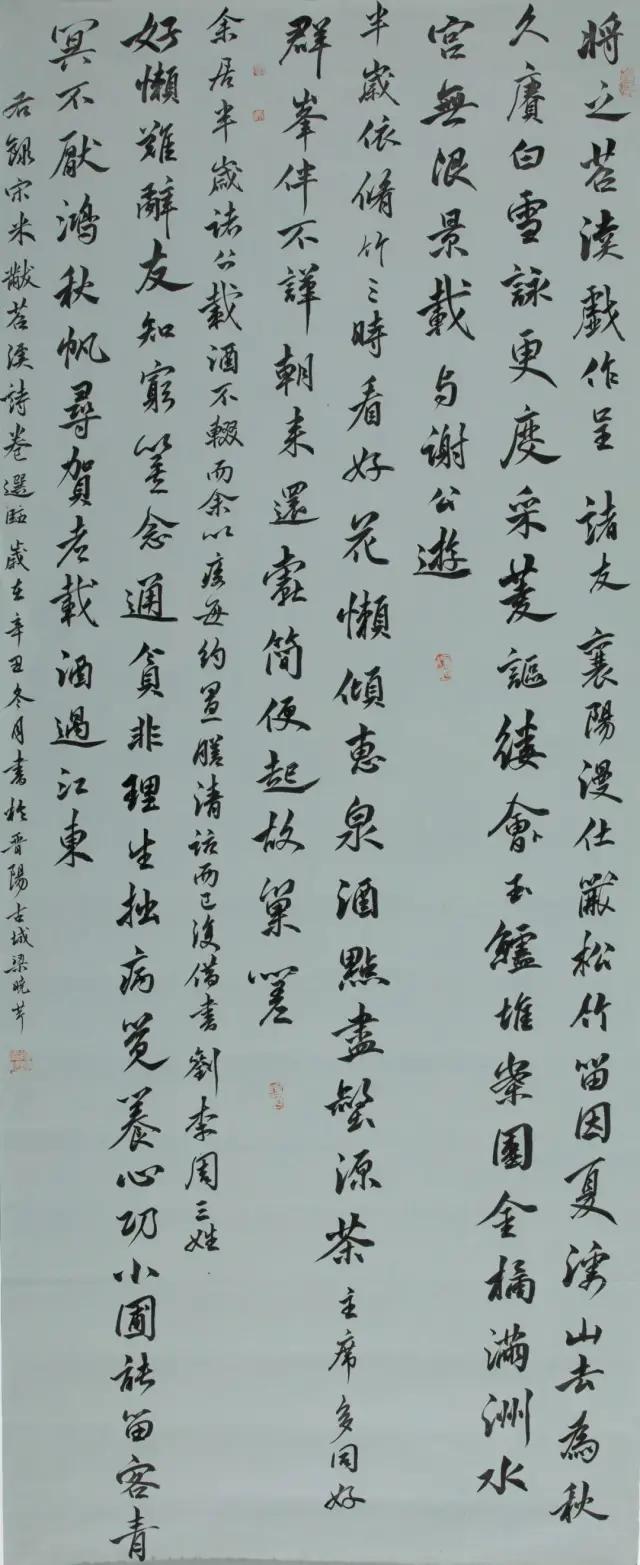 將之苕溪戲作呈諸友襄陽漫仕黻松竹留因夏溪山去為秋
久賡白雪詠更度采菱謳縷會玉鱸堆案團金橘滿洲水
宮無限景載与謝公遊
半歲依脩竹三時看好花懶傾惠泉酒點盡壑源茶主席多同好
群峯伴不譁朝来還蠹簡便起故巢嗟
余居半歲諸公載酒不輟而余以疾每約置膳清話而已復借書劉李周三姓
好懶難辭友知窮豈念通貧非理生拙病覺養心功小圃能留客青
冥不厭鴻秋帆尋賀老載酒過江東
右錄宋米黻苕溪詩卷選臨歲在辛丑冬月書於晉陽古城梁曉芹